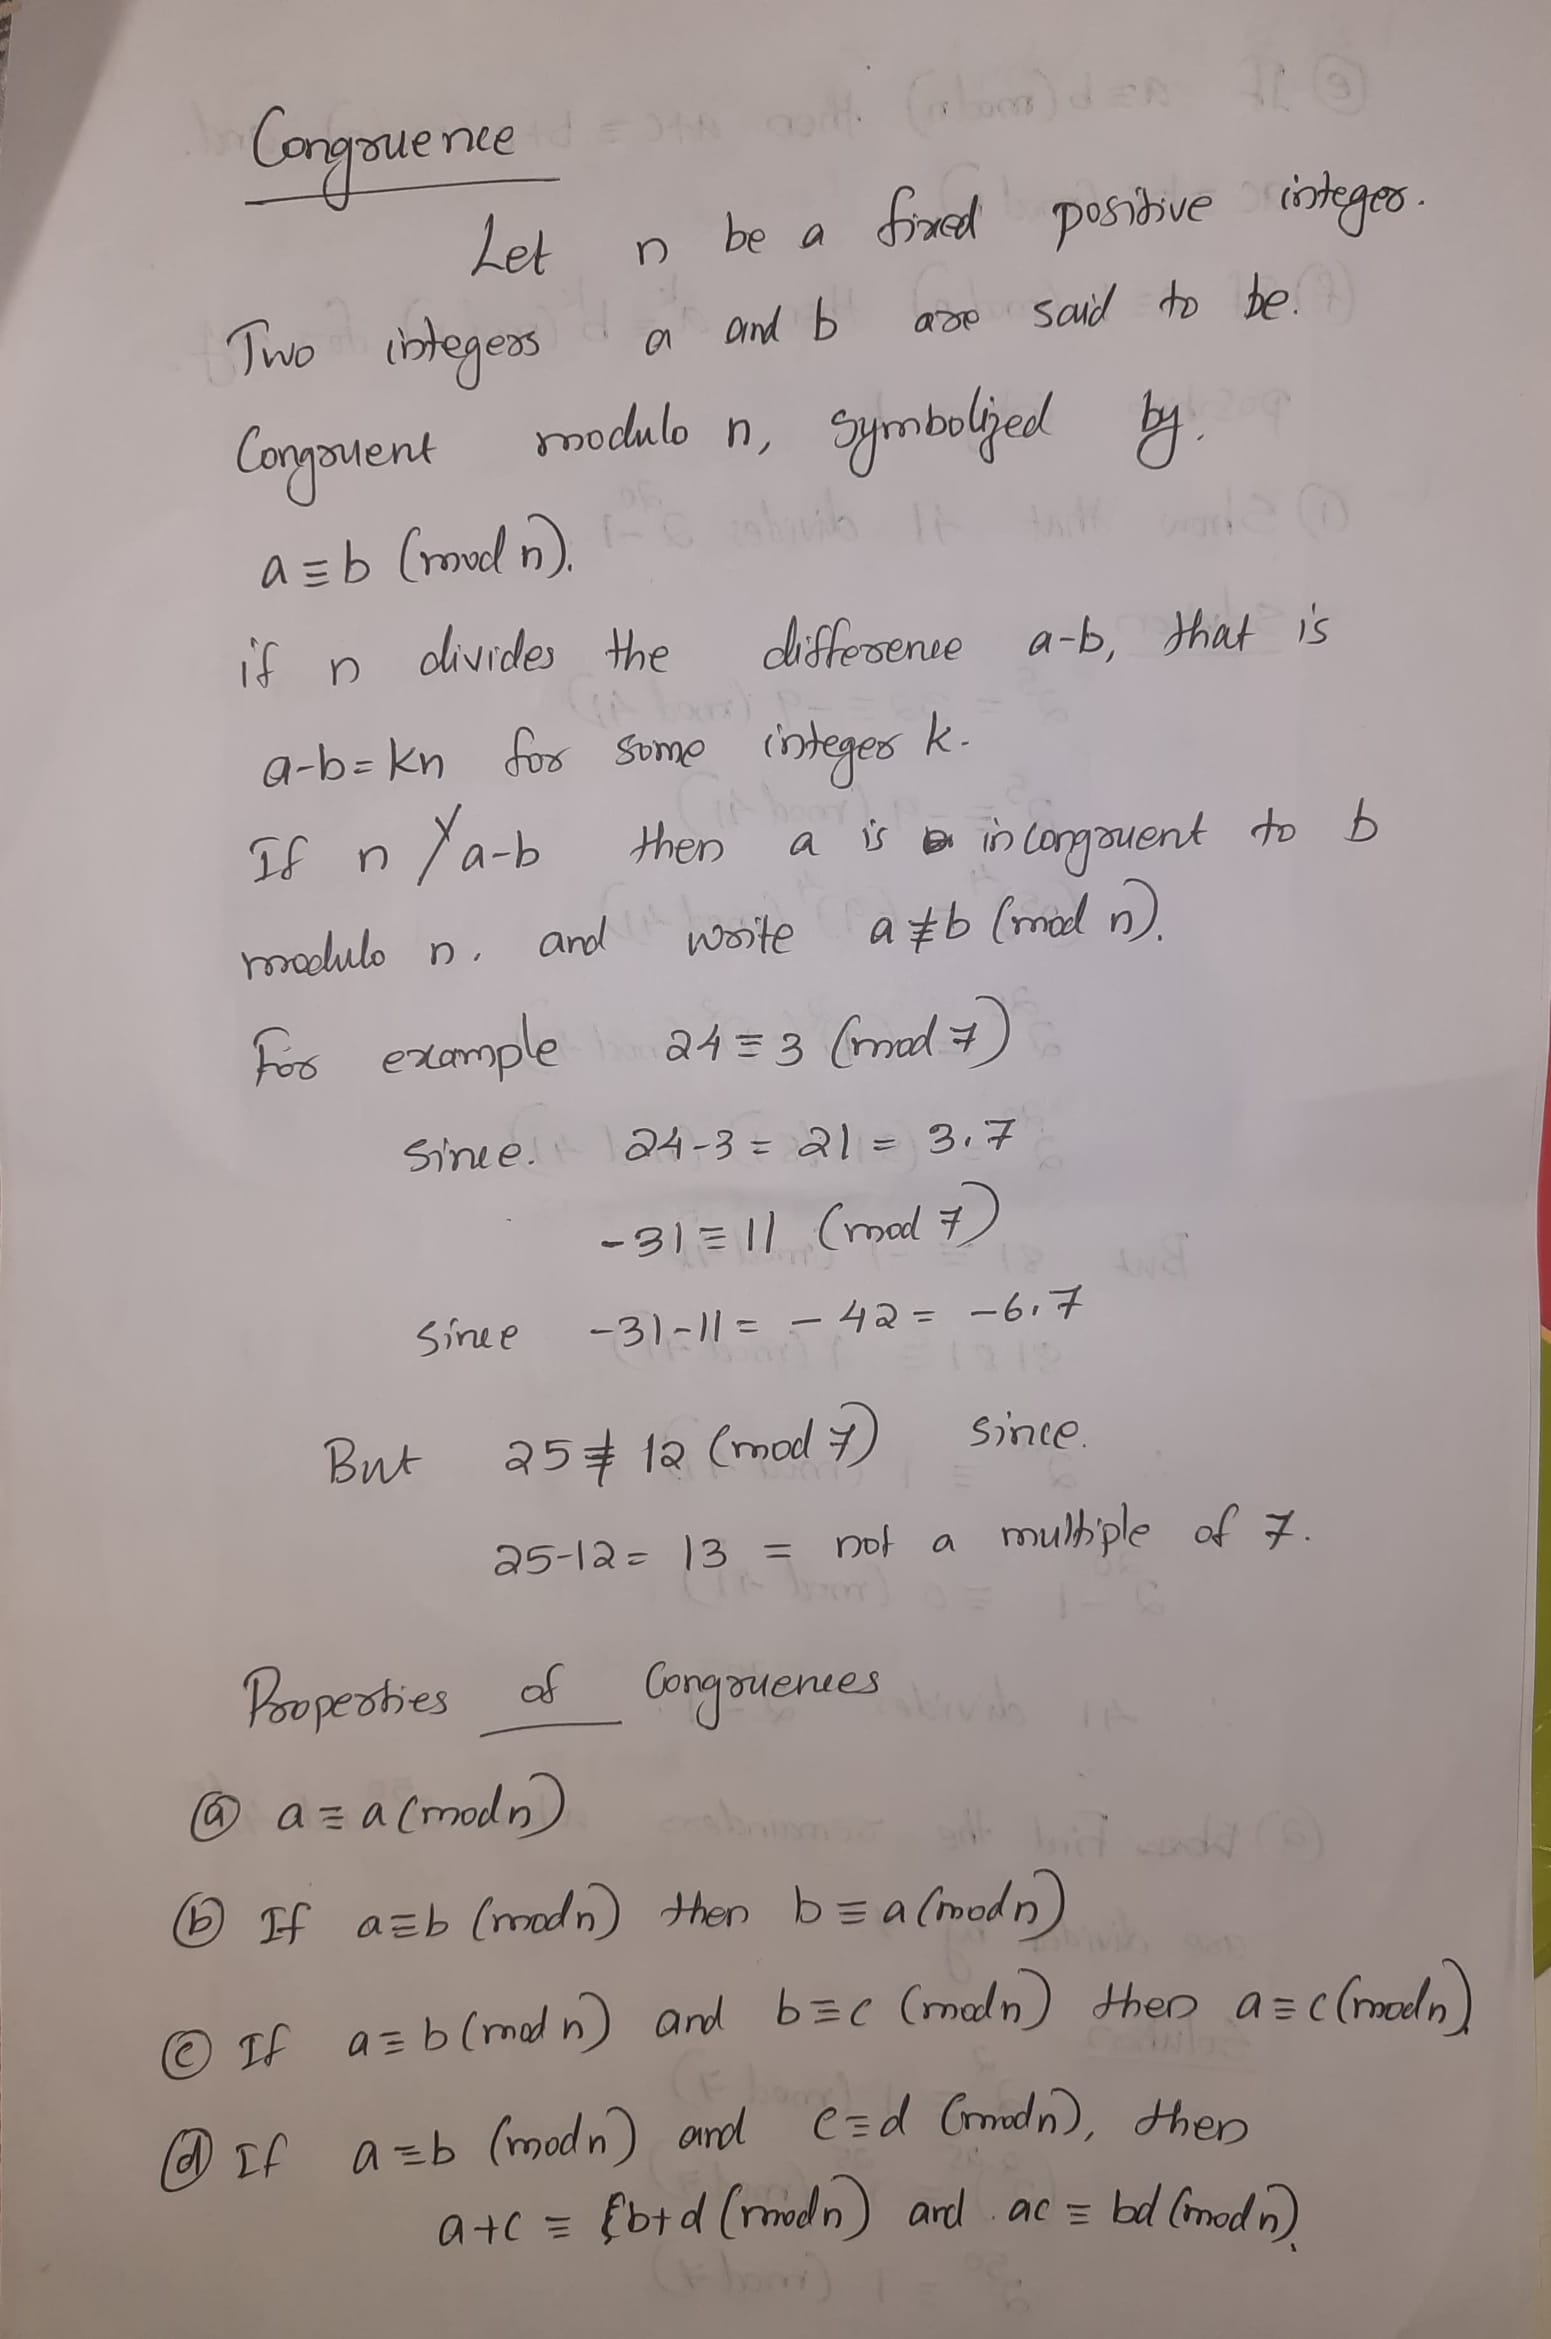 Congruence
Let n be a fixed positive integer.
Two integers a and b are said to be.
Congruent modulo n, symbolized by.
a ≡ b (mod n).
if n divides the difference a-b, that is
a-b = kn for some integer k.
If n ∤ a-b then a is incongruent to b
modulo n. and write a ≢ b (mod n).
For example 24 ≡ 3 (mod 7)
since. 24-3 = 21 = 3.7
-31 ≡ 11 (mod 7)
since -31-11 = -42 = -6.7
But 25 ≢ 12 (mod 7) since.
25-12 = 13 = not a multiple of 7.
Properties of Congruences
ⓐ a ≡ a (mod n)
ⓑ If a ≡ b (mod n) then b ≡ a (mod n)
ⓒ If a ≡ b (mod n) and b ≡ c (mod n) then a ≡ c (mod n).
ⓓ If a ≡ b (mod n) and c ≡ d (mod n), then
a+c ≡ b+d (mod n) and ac ≡ bd (mod n).